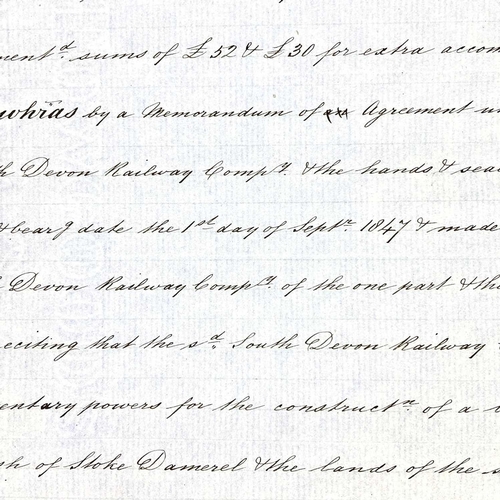 ment.d sums of £52 & £30 for extra accom
whras by a Memorandum of Agreement un
h Devon Railway Compy. & the hands & seal
& bearg date the 1st day of Septr. 1847 & made
Devon Railway Compy. of the one part & the
eciting that the sd. South Devon Railway
entary powers for the constructn. of a
sh of Stoke Damerel & the lands of the s